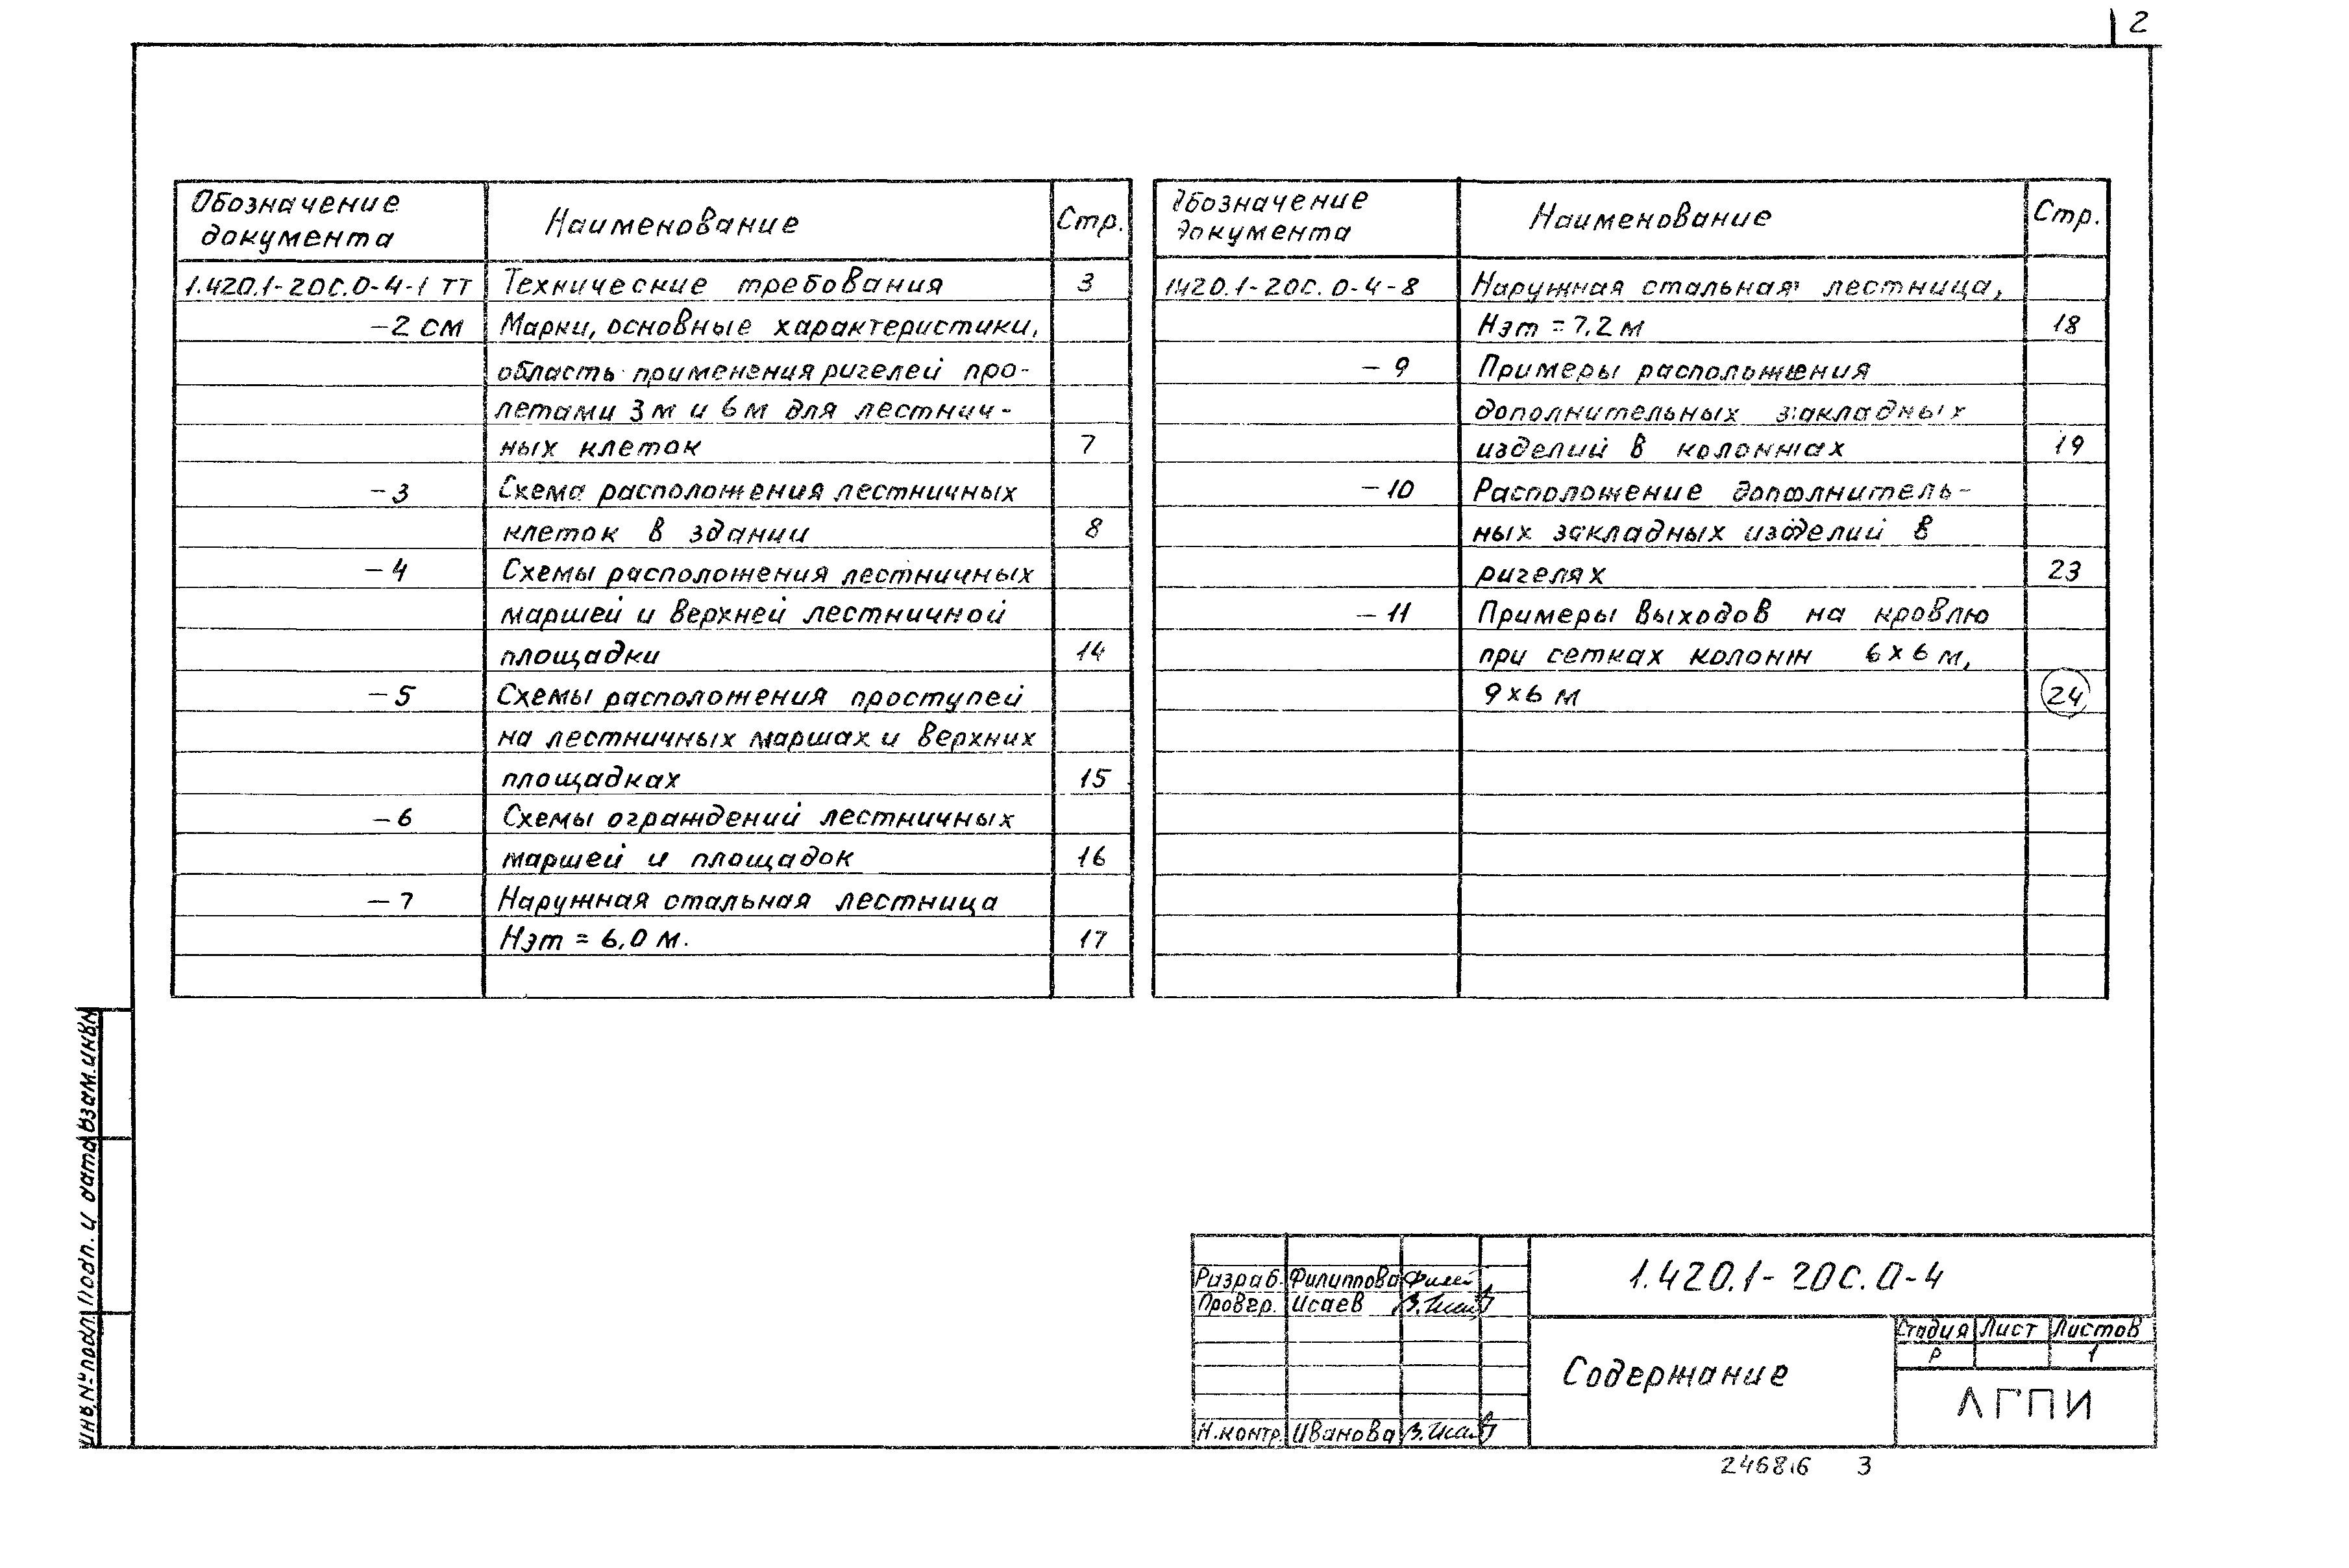 2
Обозначение документа Наименование Стр.
1.420.1-20С.0-4-1 ТТ Технические требования 3
-2 СМ Марки, основные характеристики,
область применения ригелей про-
летами 3м и 6м для лестнич-
ных клеток 7
-3 Схема расположения лестничных
клеток в здании 8
-4 Схемы расположения лестничных
маршей и верхней лестничной
площадки 14
-5 Схемы расположения проступей
на лестничных маршах и верхних
площадках 15
-6 Схемы ограждений лестничных
маршей и площадок 16
-7 Наружная стальная лестница
Нэт = 6,0 м. 17
Обозначение документа Наименование Стр.
1.420.1-20С.0-4-8 Наружная стальная лестница,
Нэт = 7.2 м 18
-9 Примеры расположения
дополнительных закладных
изделий в колоннах 19
-10 Расположение дополнитель-
ных закладных изделий в
ригелях 23
-11 Примеры выходов на кровлю
при сетках колонн 6х6 м,
9х6 м 24
Взам.инв.№
Подп. и дата
Инв.№ подл.
Разраб. Филиппова
Провер. Исаев
Н.контр. Иванова
1.420.1-20С.0-4
Содержание
Стадия Лист Листов
Р 1
ЛГПИ
24686 3